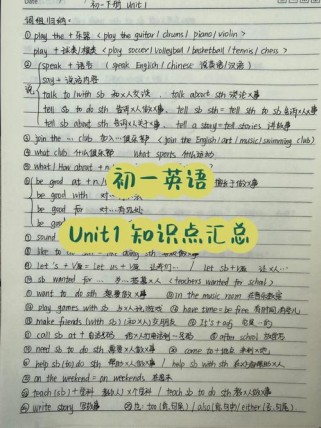 初一下册 Unit 1
词组归纳:
① play the + 乐器 < play the guitar / drums / piano / violin >
play + 球类/棋类 < play soccer / volleyball / basketball / tennis / chess >
② speak + 语言 ( speak English / Chinese 说英语/汉语 )
说
say + 说话内容
talk to/with sb 和某人交谈, talk about sth 谈论某事
tell sb to do sth 告诉某人做某事, tell sb sth = tell sth to sb 告诉某人某事
tell sb about sth 告诉某人关于某事, tell a story = tell stories 讲故事
③ join the … club 加入…俱乐部 ( join the English / art / music / swimming club )
④ what club 什么俱乐部 what sports 什么运动
⑤ what / How about + n /
⑥ be good at + n /
be good with 对
be good for 对
be good to
初一英语
Unit1 知识点汇总
sound
like to
let's + V原 = let us + V原 让我们… / let sb + V原 让某人…
sb wanted for … 招…某人 < teachers wanted for school >
want to do sth 想要做某事 in the music room 在音乐教室
play games with sb 与某人玩游戏 have time = be free 有时间
make friends (with sb) (和某人) 交朋友 It's + adj
call sb at + 电话号码 after school 放学后
need sb to do sth 需要某人做某事 come to + 地点 来到某地
help sb (to) do sth 帮助某人做某事 / help sb with sth
on the weekend = on weekends 在周末
teach (sb) + 学科 教(某人)某个学科 / teach sb to do sth 教某人做某事
write story 写故事 也: too (句尾) / also (句中) / either (否,句尾)